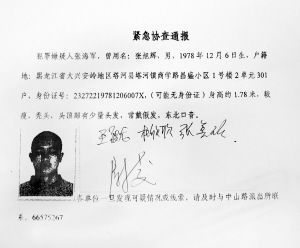 紧急协查通报
犯罪嫌疑人张海军,曾用名:张炽辉,男,1978年12月6日生,户籍
地:黑龙江省大兴安岭地区塔河县塔河镇商学路盛小区1号楼2单元301
户,身份证号:23272219781206007X,(可能无身份证)身高约1.78米,较
瘦,秃头,头顶部有少量头发,常戴假发,东北口音。
各单位一旦发现可疑情况或线索,请及时与中山路派出所联
系,66575267